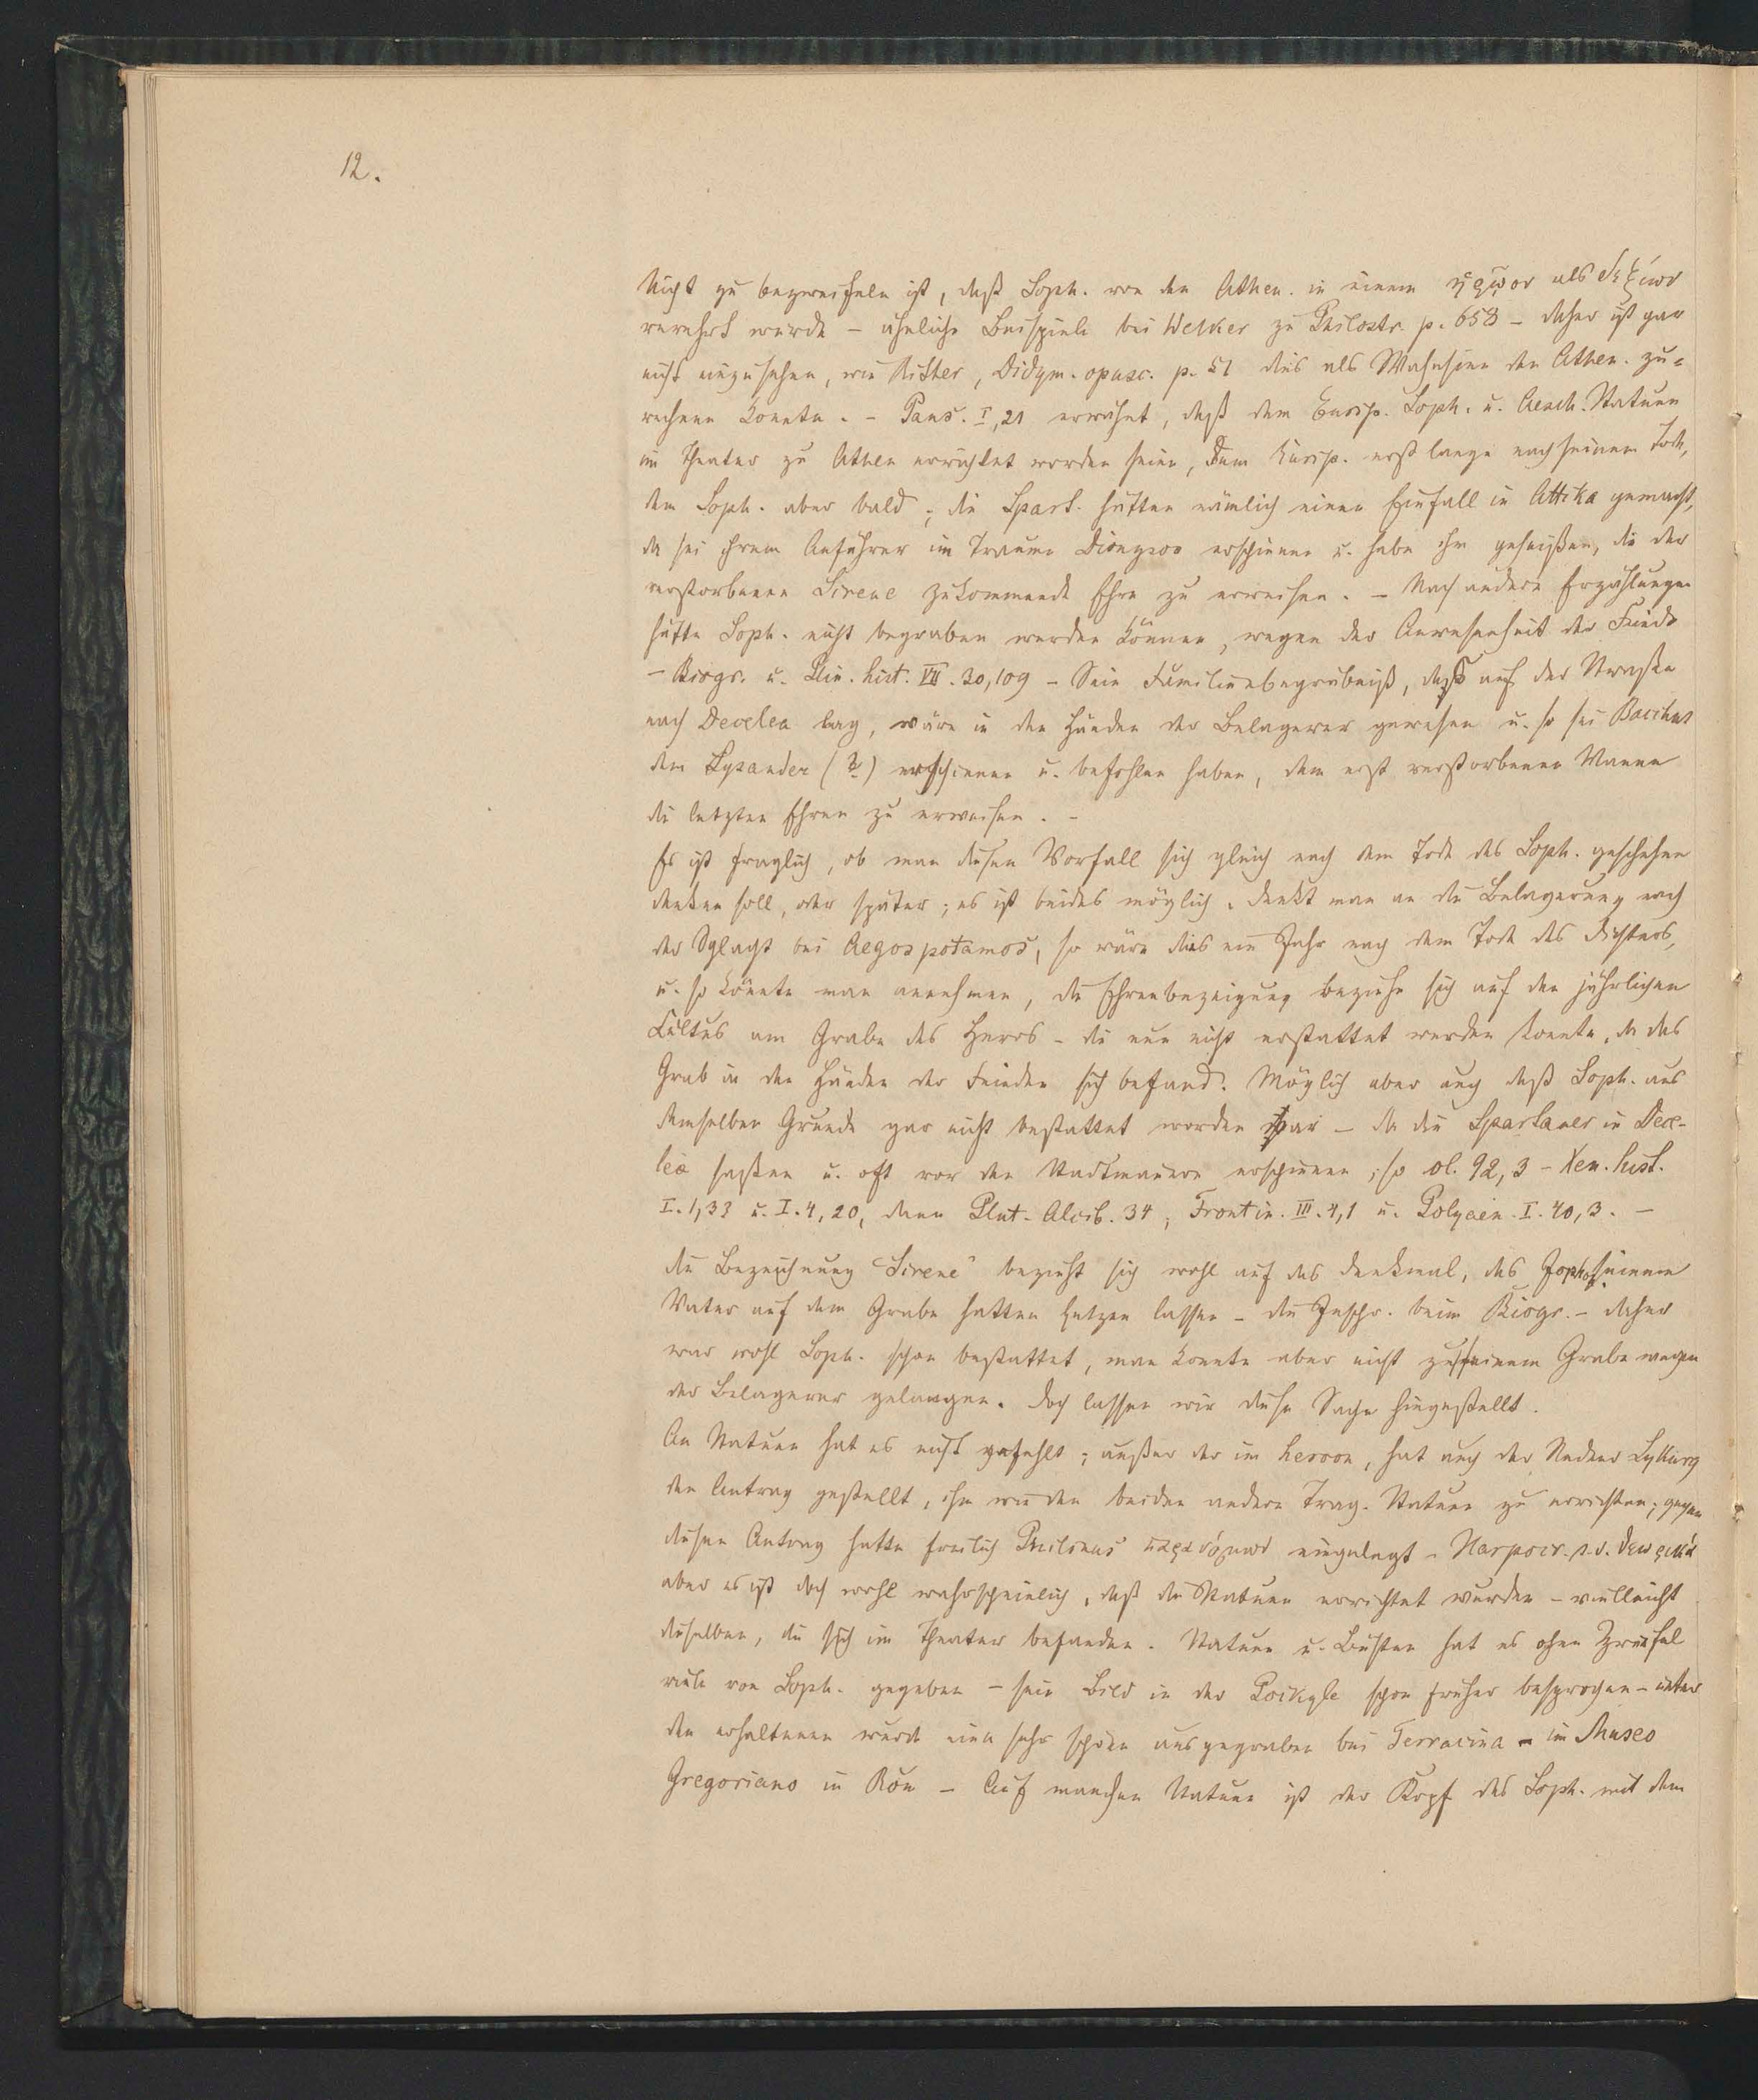 12.
Nicht zu bezweifeln ist, daß Soph. von den Athen. in einem ἡρῷον als Δεξίων
verehrt wurde – ähnliche Beispiele bei Welker zu Philostr. p. 658 – daher ist gar
nicht einzusehen, wie Ritter, Didym. opusc. p. 51 dies als Wahnsinn den Athen. zu=
rechnen konnte. – Paus. I,21 erwähnt, daß dem Eurip. Soph. u. Aesch. Statuen
im Theater zu Athen errichtet worden seien, dem Eurip. erst lange nach seinem Tode,
dem Soph. aber bald; die Spart. hätten nämlich einen Einfall in Attika gemacht,
da sei ihrem Anführer im Traume Dionysos erschienen u. habe ihn geheißen, die der
verstorbenen Sirene zukommende Ehre zu erweisen. – Nach andern Erzählungen
hätte Soph. nicht begraben werden können, wegen der Anwesenheit der Feinde
– Biogr. u. Plin. hist. VII. 30,109 – Sein Familienbegräbniß, das auf der Straße
nach Decelea lag, wäre in den Händen der Belagerer gewesen u. so sei Bacchus
dem Lysander (?) erschienen u. befohlen haben, dem erst verstorbenen Manne
die letzten Ehren zu erweisen. –
Es ist fraglich, ob man diesen Vorfall sich gleich nach dem Tode des Soph. geschehen
denken soll, oder später; es ist beides möglich. denkt man an die Belagerung nach
der Schlacht bei Aegos potamos, so wäre dies ein Jahr nach dem Tode des Dichters,
u. so könnte man annehmen, die Ehrenbezeigung beziehe sich auf den jährlichen
Cultus am Grabe des Heros – die nun nicht erstattet werden konnte, da das
Grab in den Händen der Feinden sich befand. Möglich aber auch daß Soph. aus
demselben Grunde gar nicht bestattet worden war – da die Spartaner in Dece-
leia saßen u. oft vor den Stadtmauern erschienen; so ol. 92,3 – Xen. hist.
I.1,33 u. I.4,20, dann Plut. Alcib. 34, Frontin. III.4,1 u. Polyaen. I.40,3. –
die Bezeichnung „Sirene“ bezieht sich wohl auf das Denkmal, das Joph. seinem
Vater auf dem Grabe hatten setzen lassen – die Inschr. beim Biogr. – daher
war wohl Soph. schon bestattet, man konnte aber nicht zu seinem Grabe wegen
der Belagerer gelangen. doch lassen wir diese Sache hingestellt.
An Statuen hat es nicht gefehlt; außer der im heroon, hat auch der Redner Lykurg
den Antrag gestellt, ihm wie den beiden andern Trag. Statuen zu errichten; gegen
diesen Antrag hatte freilich Philinus παρανόμων eingelegt – Harpocr. s.v. θεωρικά
aber es ist doch wohl wahrscheinlich, daß die Statuen errichtet wurden – vielleicht
dieselben, die sich im Theater befanden. Statuen u. Büsten hat es ohne Zweifel
viele von Soph. gegeben – sein Bild in der Poikyle schon früher besprochen – unter
den erhaltenen wurde eine sehr schöne ausgegraben bei Terracina – im Museo
Gregoriano in Rom – Auf manchen Statuen ist der Kopf des Soph. mit dem